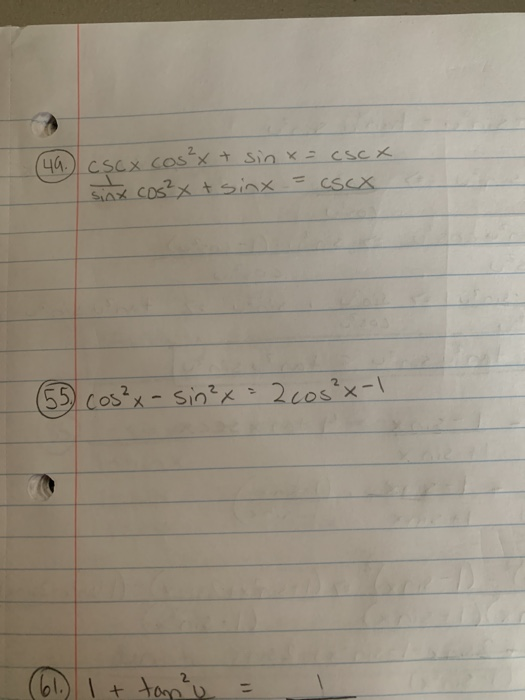 49. cscx cos²x + sin x = csc x
1/sinx cos²x + sinx = cscx
55. cos²x - sin²x = 2cos²x-1
61. 1 + tan²u = 1